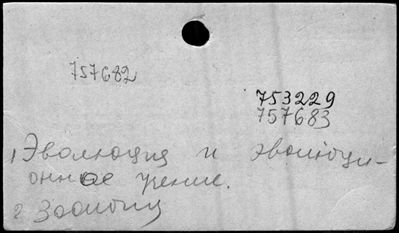 757682
753229
757683
1 Эволюция и эволюци-
онное учение.
2 Зоология